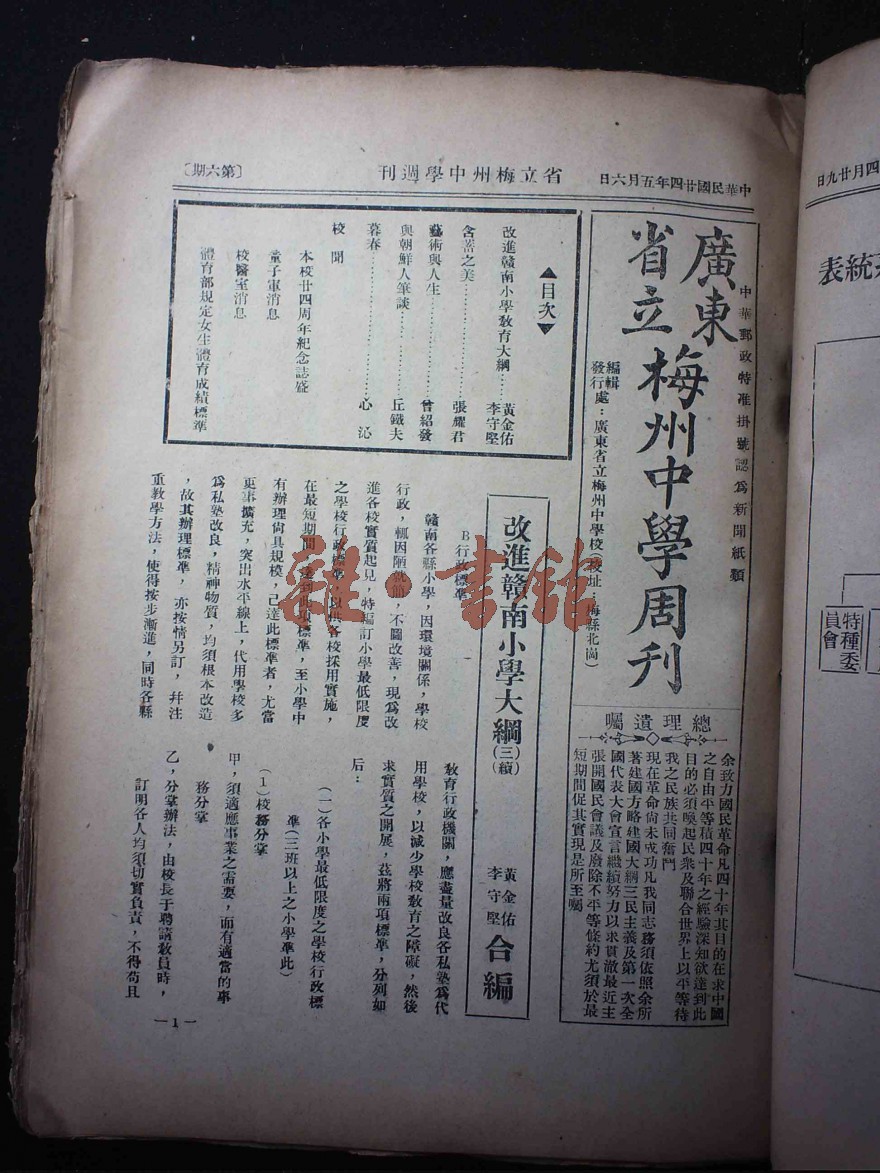 中華民國廿四年五月六日
省立梅州中學週刊
〔第六期〕
中華郵政特准掛號認爲新聞紙類
廣東
省立
梅州中學周刊
編輯
發行處：廣東省立梅州中學校（校址：梅縣北崗）
總理遺囑
余致力國民革命凡四十年其目的在求中國
之自由平等積四十年之經驗深知欲達到此
目的必須喚起民衆及聯合世界上以平等待
我之民族共同奮鬥
現在革命尚未成功凡我同志務須依照余所
著建國方略建國大綱三民主義及第一次全
國代表大會宣言繼續努力以求貫澈最近主
張開國民會議及廢除不平等條約尤須於最
短期間促其實現是所至囑
▲目次▼
改進贛南小學教育大綱………黃金佑
李守堅
含蓄之美………張耀君
藝術與人生………曾紹發
與朝鮮人筆談………丘鐵夫
暮春………心沁
校聞
本校廿四周年紀念誌盛
童子軍消息
校醫室消息
體育部規定女生體育成績標準
改進贛南小學大綱（三續）
黃金佑
李守堅
合編
B行政標準
贛南各縣小學，因環境關係，學校
行政，輒因陋就簡，不圖改善，現爲改
進各校實質起見，特編訂小學最低限度
之學校行政標準，以供各校採用實施，
在最短期間，達到此項標準，至小學中
有辦理尚具規模，已達此標準者，尤當
更事擴充，突出水平線上，代用學校多
爲私塾改良，精神物質，均須根本改造
，故其辦理標準，亦按情另訂，幷注
重教學方法，使得按步漸進，同時各縣
教育行政機關，應盡量改良各私塾爲代
用學校，以減少學校教育之障礙，然後
求實質之開展，茲將兩項標準，分列如
后：
（一）各小學最低限度之學校行政標
準（三班以上之小學準此）
（1）校務分掌
甲，須適應事業之需要，而有適當的事
務分掌
乙，分掌辦法，由校長于聘請教員時，
訂明各人均須切實負責，不得苟且
—1—
四月廿九日
統表
特種委
員會
雜·書館